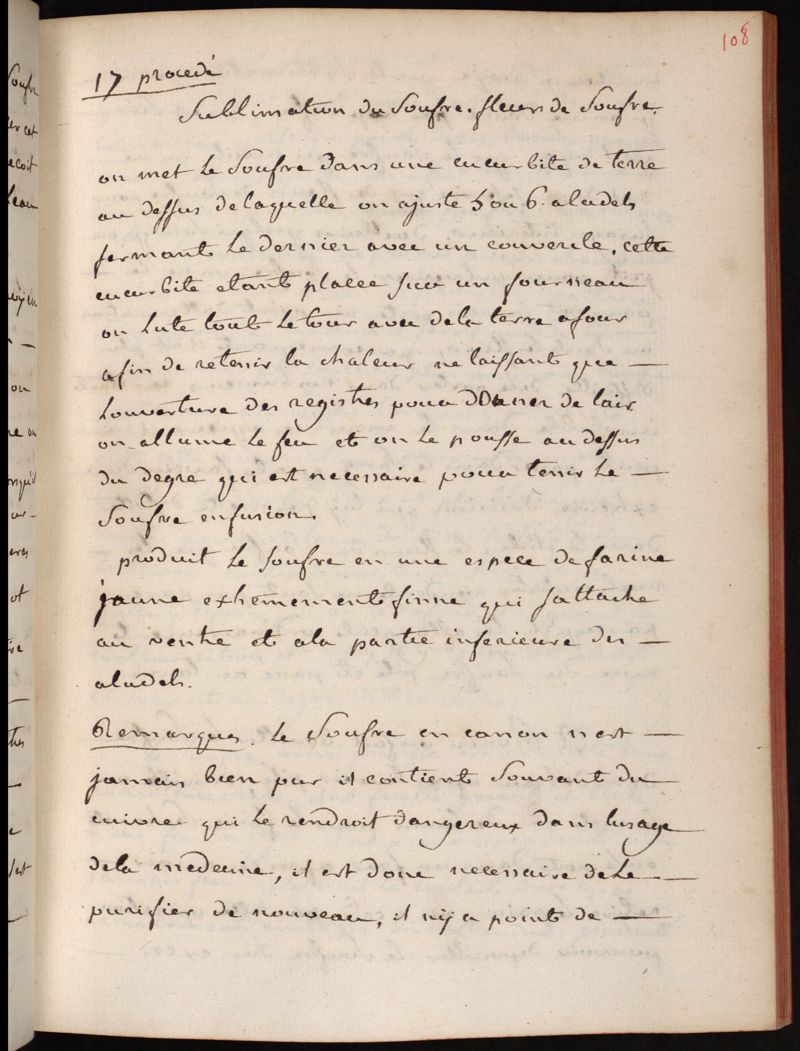 108
17 procedé
Sublimation du Soufre. fleurs de Soufre.
on met le Soufre dans une cucurbite de terre
au dessus delaquelle on ajuste 5 ou 6 aludels
fermant le dernier avec un couvercle, cette
cucurbite etant placee sur un fourneau
on lute tout le tour avec dela terre afour
afin de retenir la chaleur ne laissant que —
louverture des registres pour donner de lair
on allume le feu et on le pousse au dessus
du degre qui est necessaire pour tenir le —
Soufre enfusion.
produit le soufre en une espece de farine
jaune extremement finne qui sattache
au ventre et ala partie inferieure des —
aludels.
Remarques. le Soufre en canon nest —
jamais bien pur il contient Souvant du
cuivre qui le rendroit dangereux dans lusage
dela medecine, il est donc necessaire dele —
purifier de nouveau, il nÿ a point de —
Soufre
er cet
recoit
leau
on